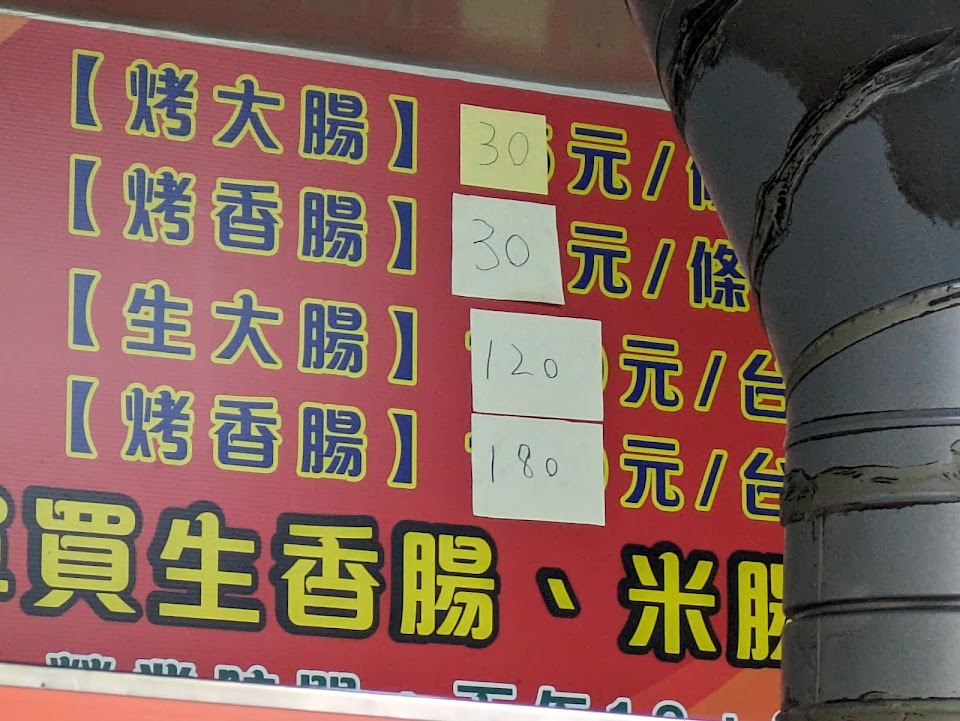 【烤大腸】30元/條
【烤香腸】30元/條
【生大腸】120元/台
【烤香腸】180元/台
買生香腸、米腸
營業時間：下午